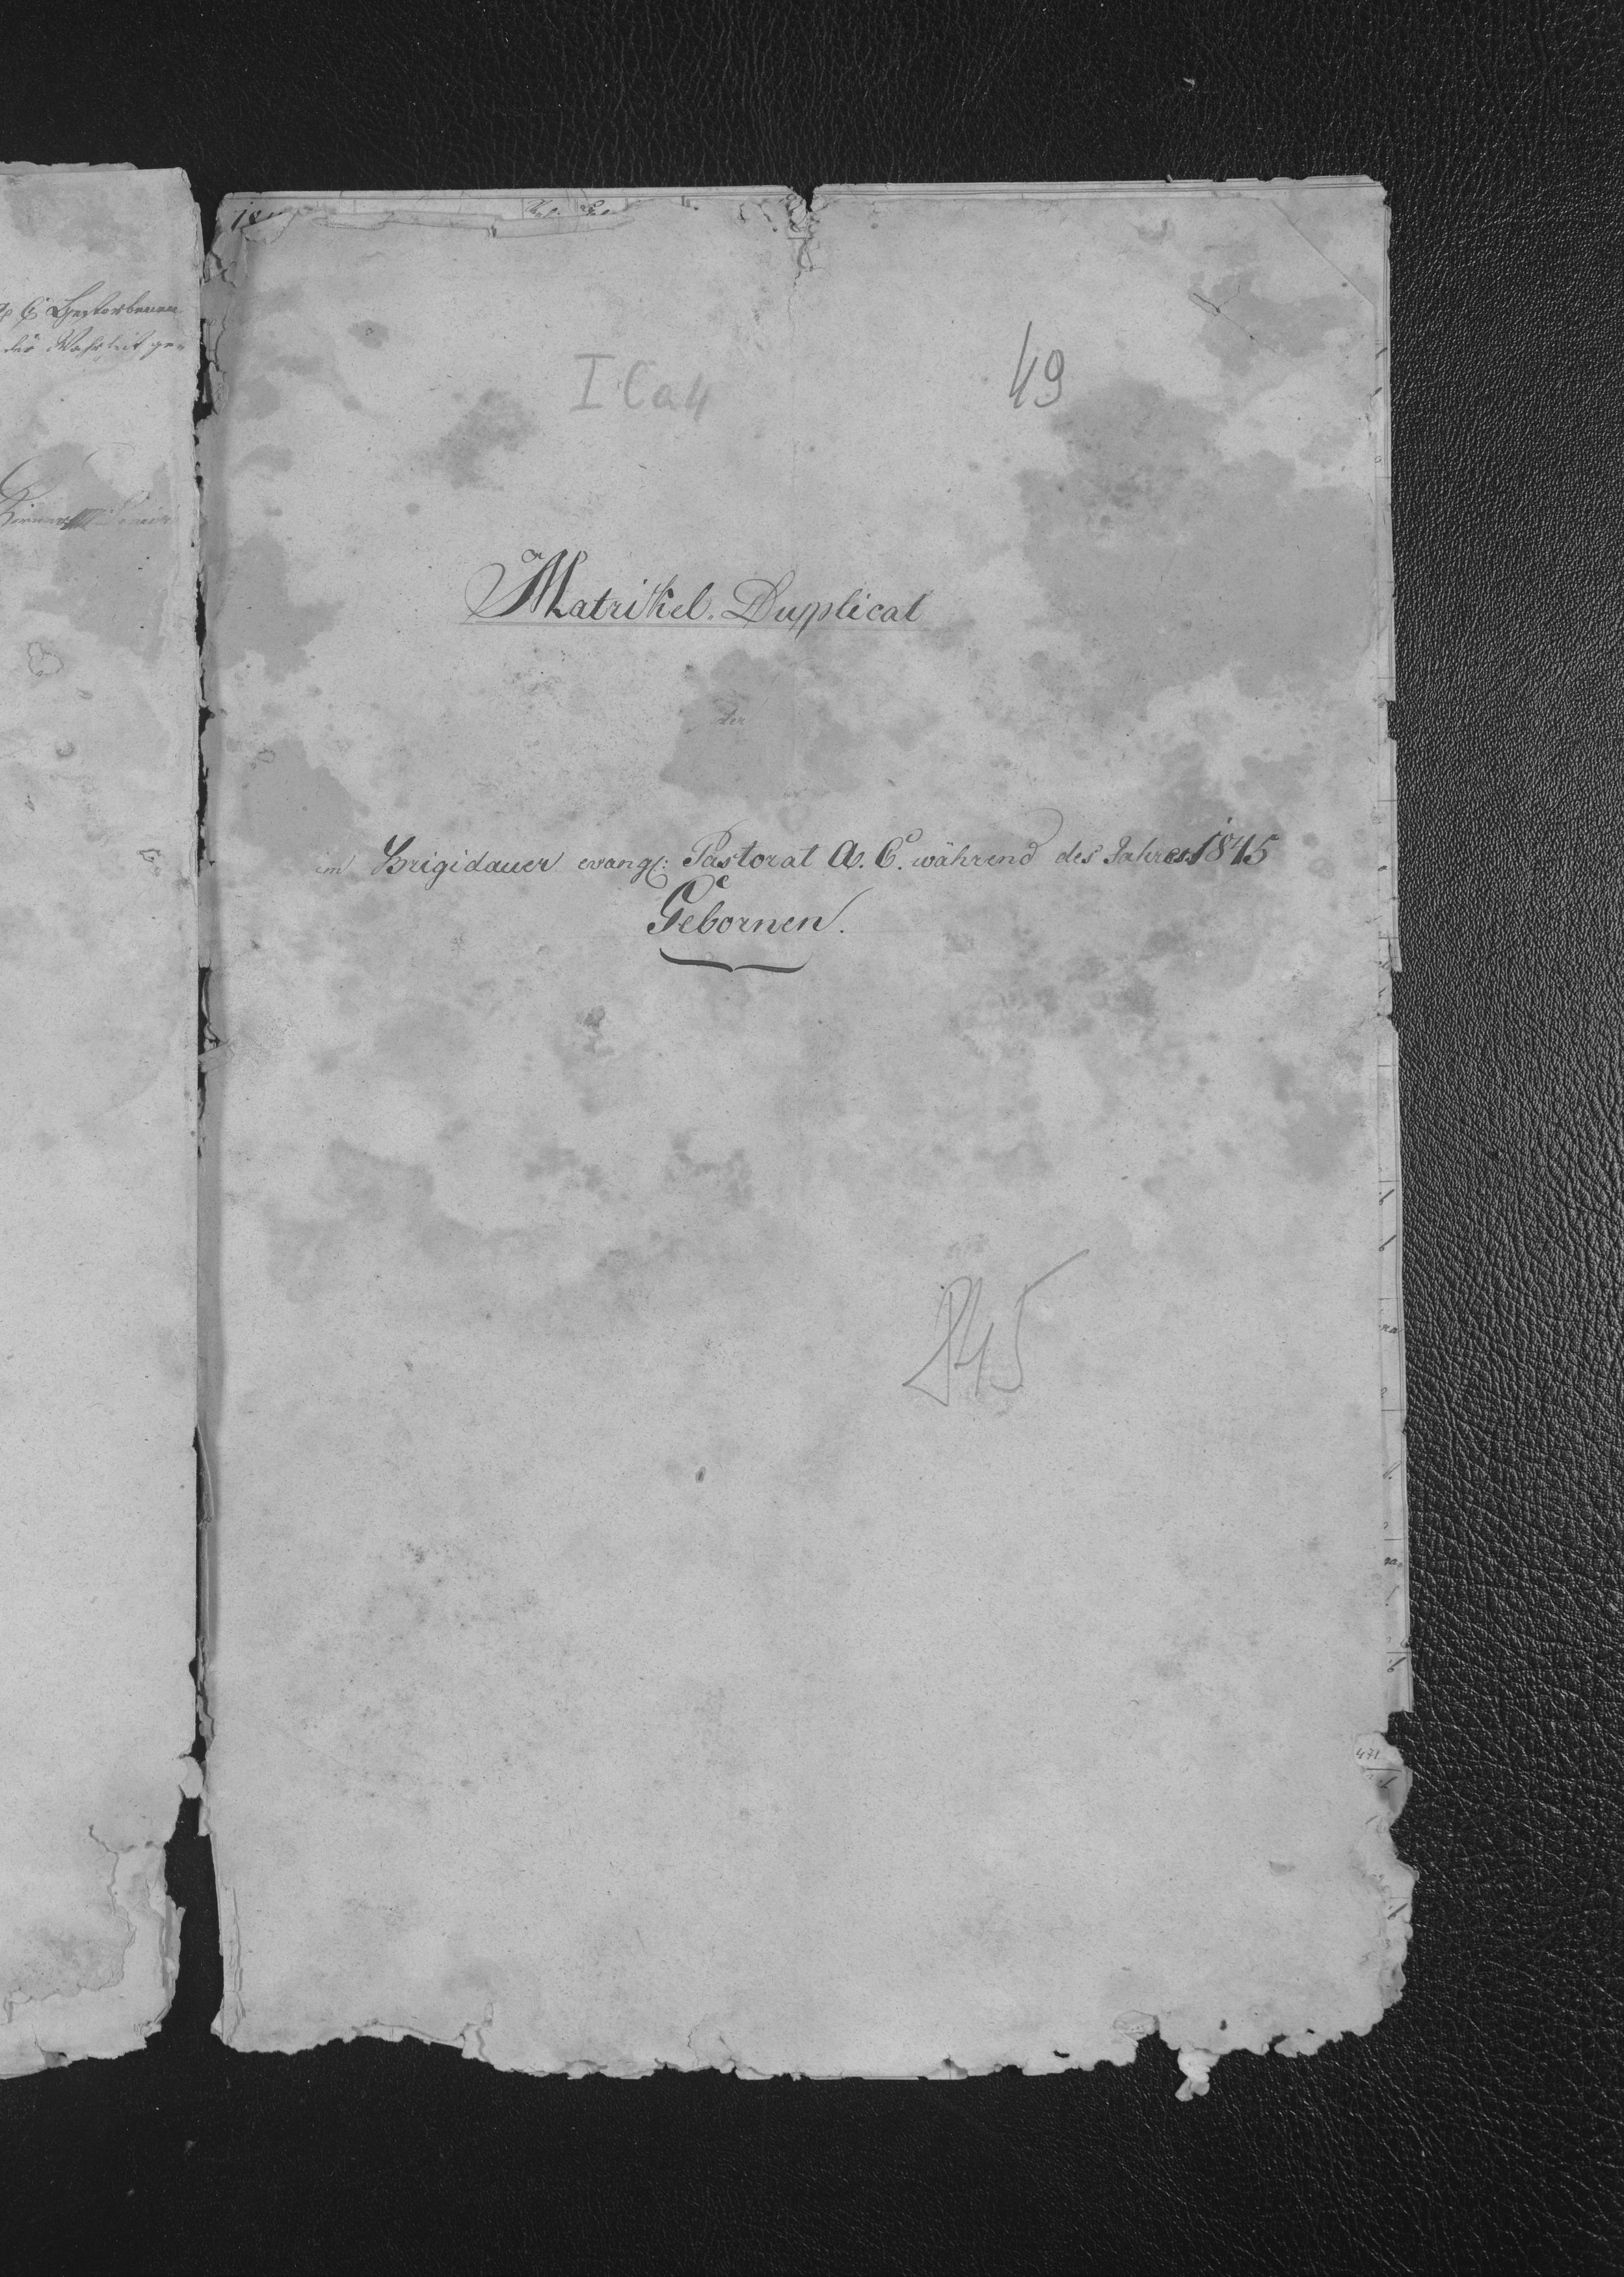 I Ca 4
49
Matrikel-Duplicat
der
im Brigidauer evangl: Pastorat A. C. während des Jahres 1845
Gebornen.
845
471